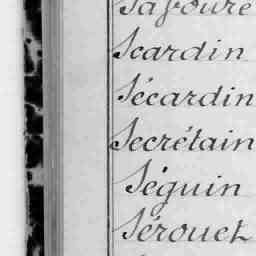 Scardin
Sécardin
Secrétain
Séguin
Sérouet